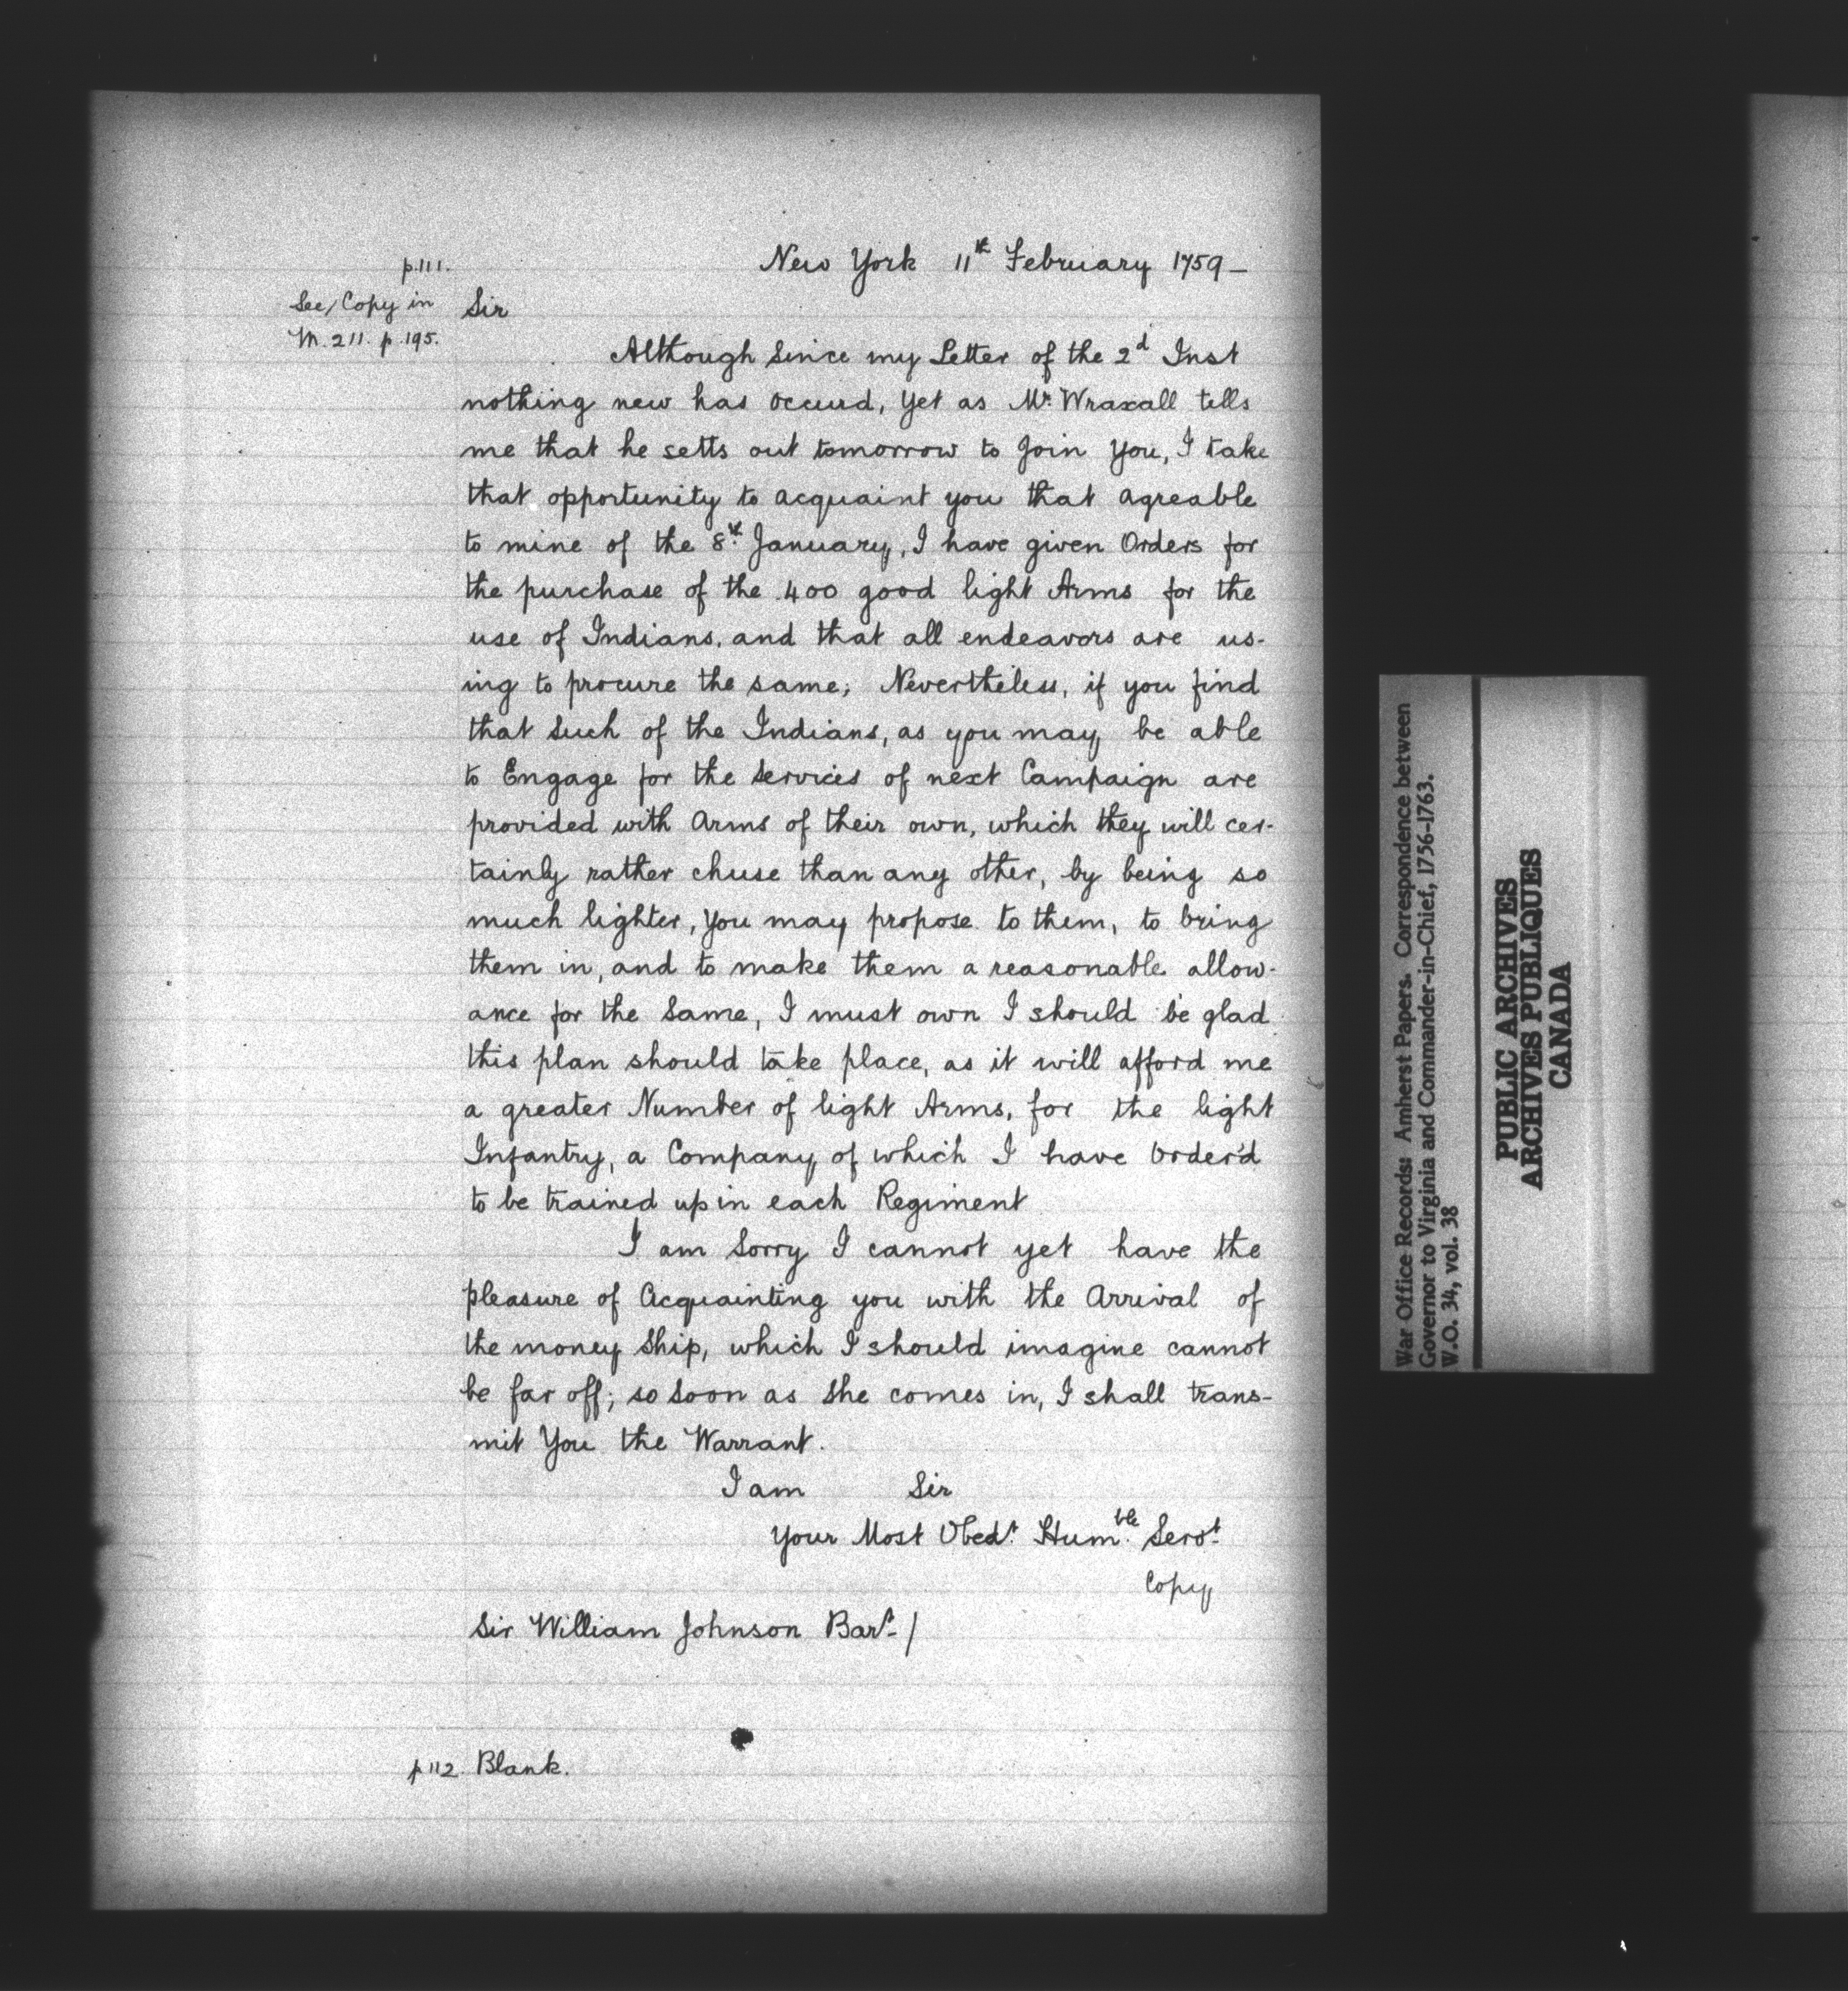 p.111.
New York 11th February 1759 —
See/Copy in
M. 211. p. 195.
Sir
Although Since my Letter of the 2d Inst
nothing new has occurd, Yet as Mr. Wraxall tells
me that he setts out tomorrow to Join You, I take
that opportunity to acquaint you that agreable
to mine of the 8th. January, I have given Orders for
the purchase of the 400 good light Arms for the
use of Indians, and that all endeavors are us-
ing to procure the same; Nevertheless, if you find
that Such of the Indians, as you may be able
to Engage for the Services of next Campaign are
provided with Arms of their own, which they will cer-
tainly rather chuse than any other, by being so
much lighter, You may propose to them, to bring
them in, and to make them a reasonable allow-
ance for the Same, I must own I should be glad
this plan should take place, as it will afford me
a greater Number of light Arms, for the light
Infantry, a Company of which I have Order'd
to be trained up in each Regiment
I am Sorry I cannot yet have the
pleasure of Acquainting you with the Arrival of
the money Ship, which I should imagine cannot
be far off; so Soon as She comes in, I shall trans-
mit You the Warrant.
I am Sir
Your Most Obedt. Humble. Servt.
Copy
Sir William Johnson Bart. /
p 112. Blank.
War Office Records: Amherst Papers. Correspondence between
Governor to Virginia and Commander-in-Chief, 1756-1763.
W.O. 34, vol. 38
PUBLIC ARCHIVES
ARCHIVES PUBLIQUES
CANADA